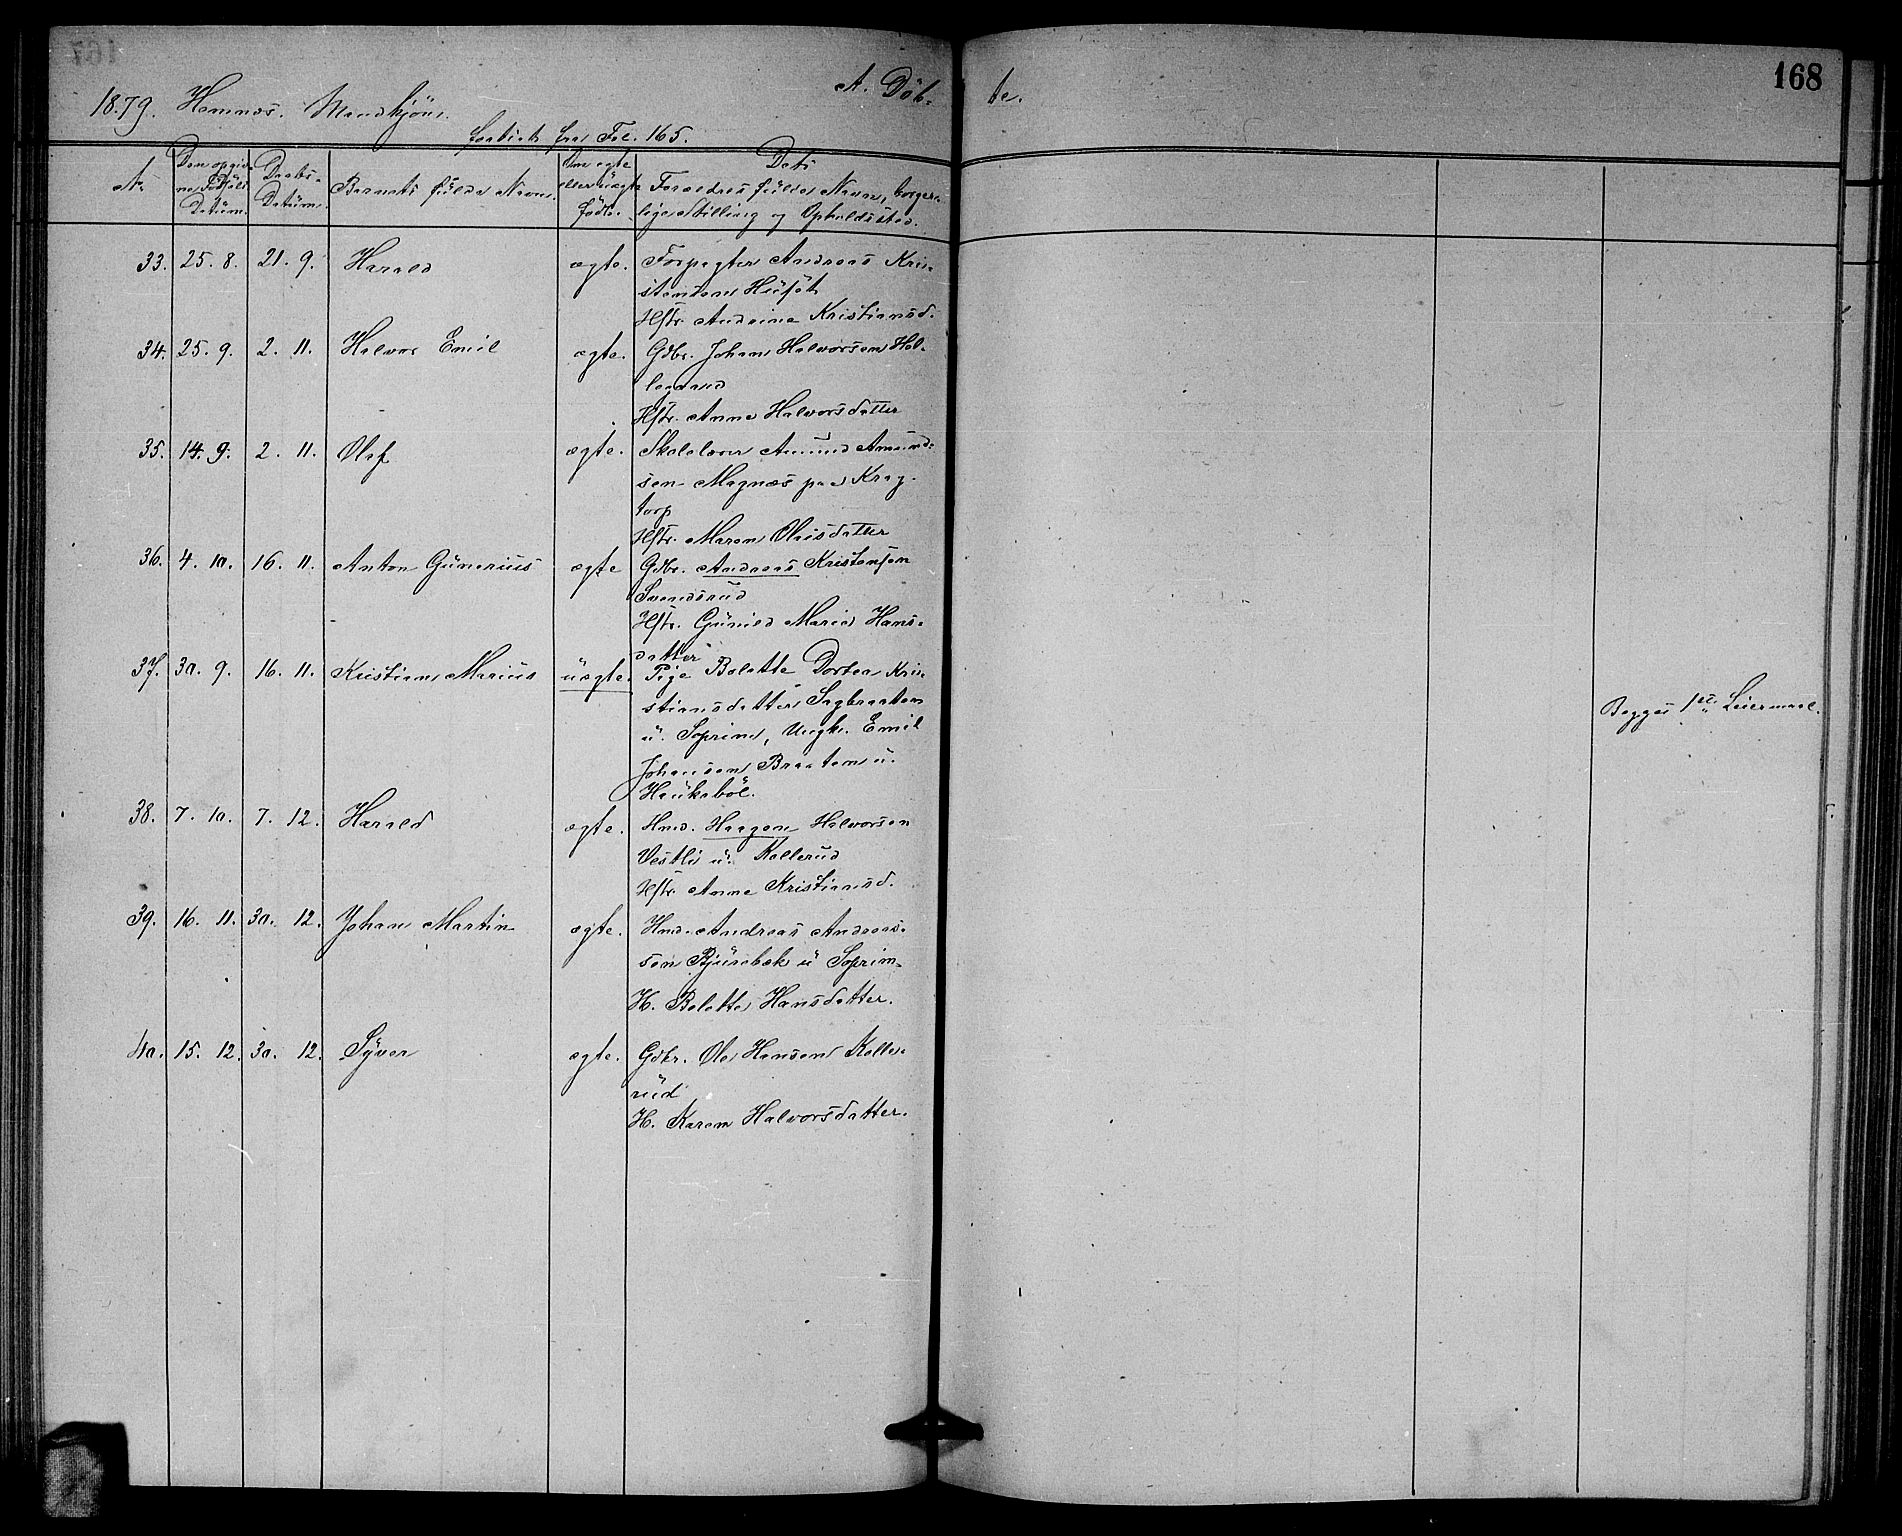 168
1879. Hemnæs. Mandkjøn.
A. Döb- te.
fortsat fra Fol. 165.
No
Den opgiv-
ne Fødsels-
Datum.
Daabs-
Datum.
Barnets fulde Navn.
Om ægte
eller uægte
født.
Dets
Forældres fulde Navn, borger-
lige Stilling og Opholdssted.
33. 25. 8. 21. 9. Harald ægte. Forpagter Andreas Kri-
stensen Hüset
Hstr. Andrine Kristiansd.
34. 25. 9. 2. 11. Halvor Emil ægte. Gdbr. Johan Halvorsen
Hstr. Anne Halvorsdatter
35. 14. 9. 2. 11. Olaf ægte. Skolelærer Amund Amund-
sen Magnæs paa Krag-
torp
Hstr. Maren Olaisdatter
36. 4. 10. 16. 11. Anton Günerius ægte Gdbr. Andreas Kristensen
Svendsrud
Hstr. Günild Marie Hans-
datter
37. 30. 9. 16. 11. Kristian Marius uægte. Pige Bolette Dortea Kri-
stiansdatter Sagbraaten
u. Soprim, Ungk. Emil
Johansen Braaten u.
Haukabøl.
Begges 1ste Leiermaal.
38. 7. 10. 7. 12. Harald ægte. Hmd. Haagen Halvorsen
Vestli u. Kollerud
Hstr. Anne Kristiansd.
39. 16. 11. 30. 12. Johan Martin ægte. Hmd. Andreas Andreas-
sen Bjürebæk u Soprim
H. Bolette Hansdatter.
40. 15. 12. 30. 12. Syver ægte. Gdbr. Ole Hansen Kolle-
rüd
H. Karen Halvorsdatter.